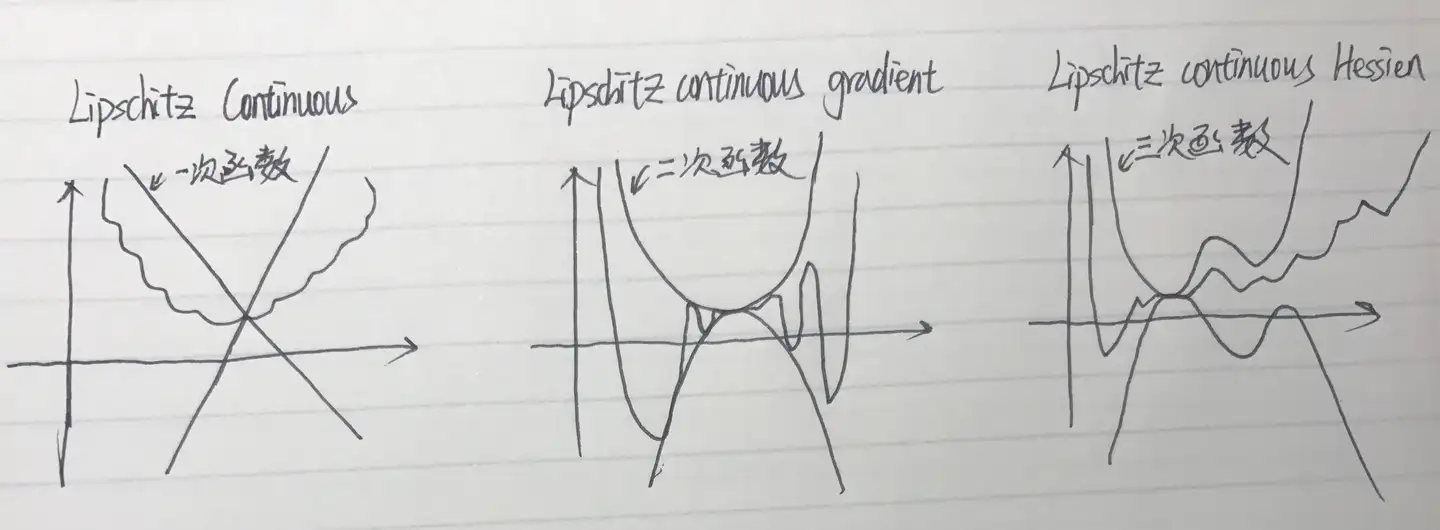 Lipschitz Continuous
一次函数
Lipschitz continuous gradient
二次函数
Lipschitz continuous Hessien
三次函数